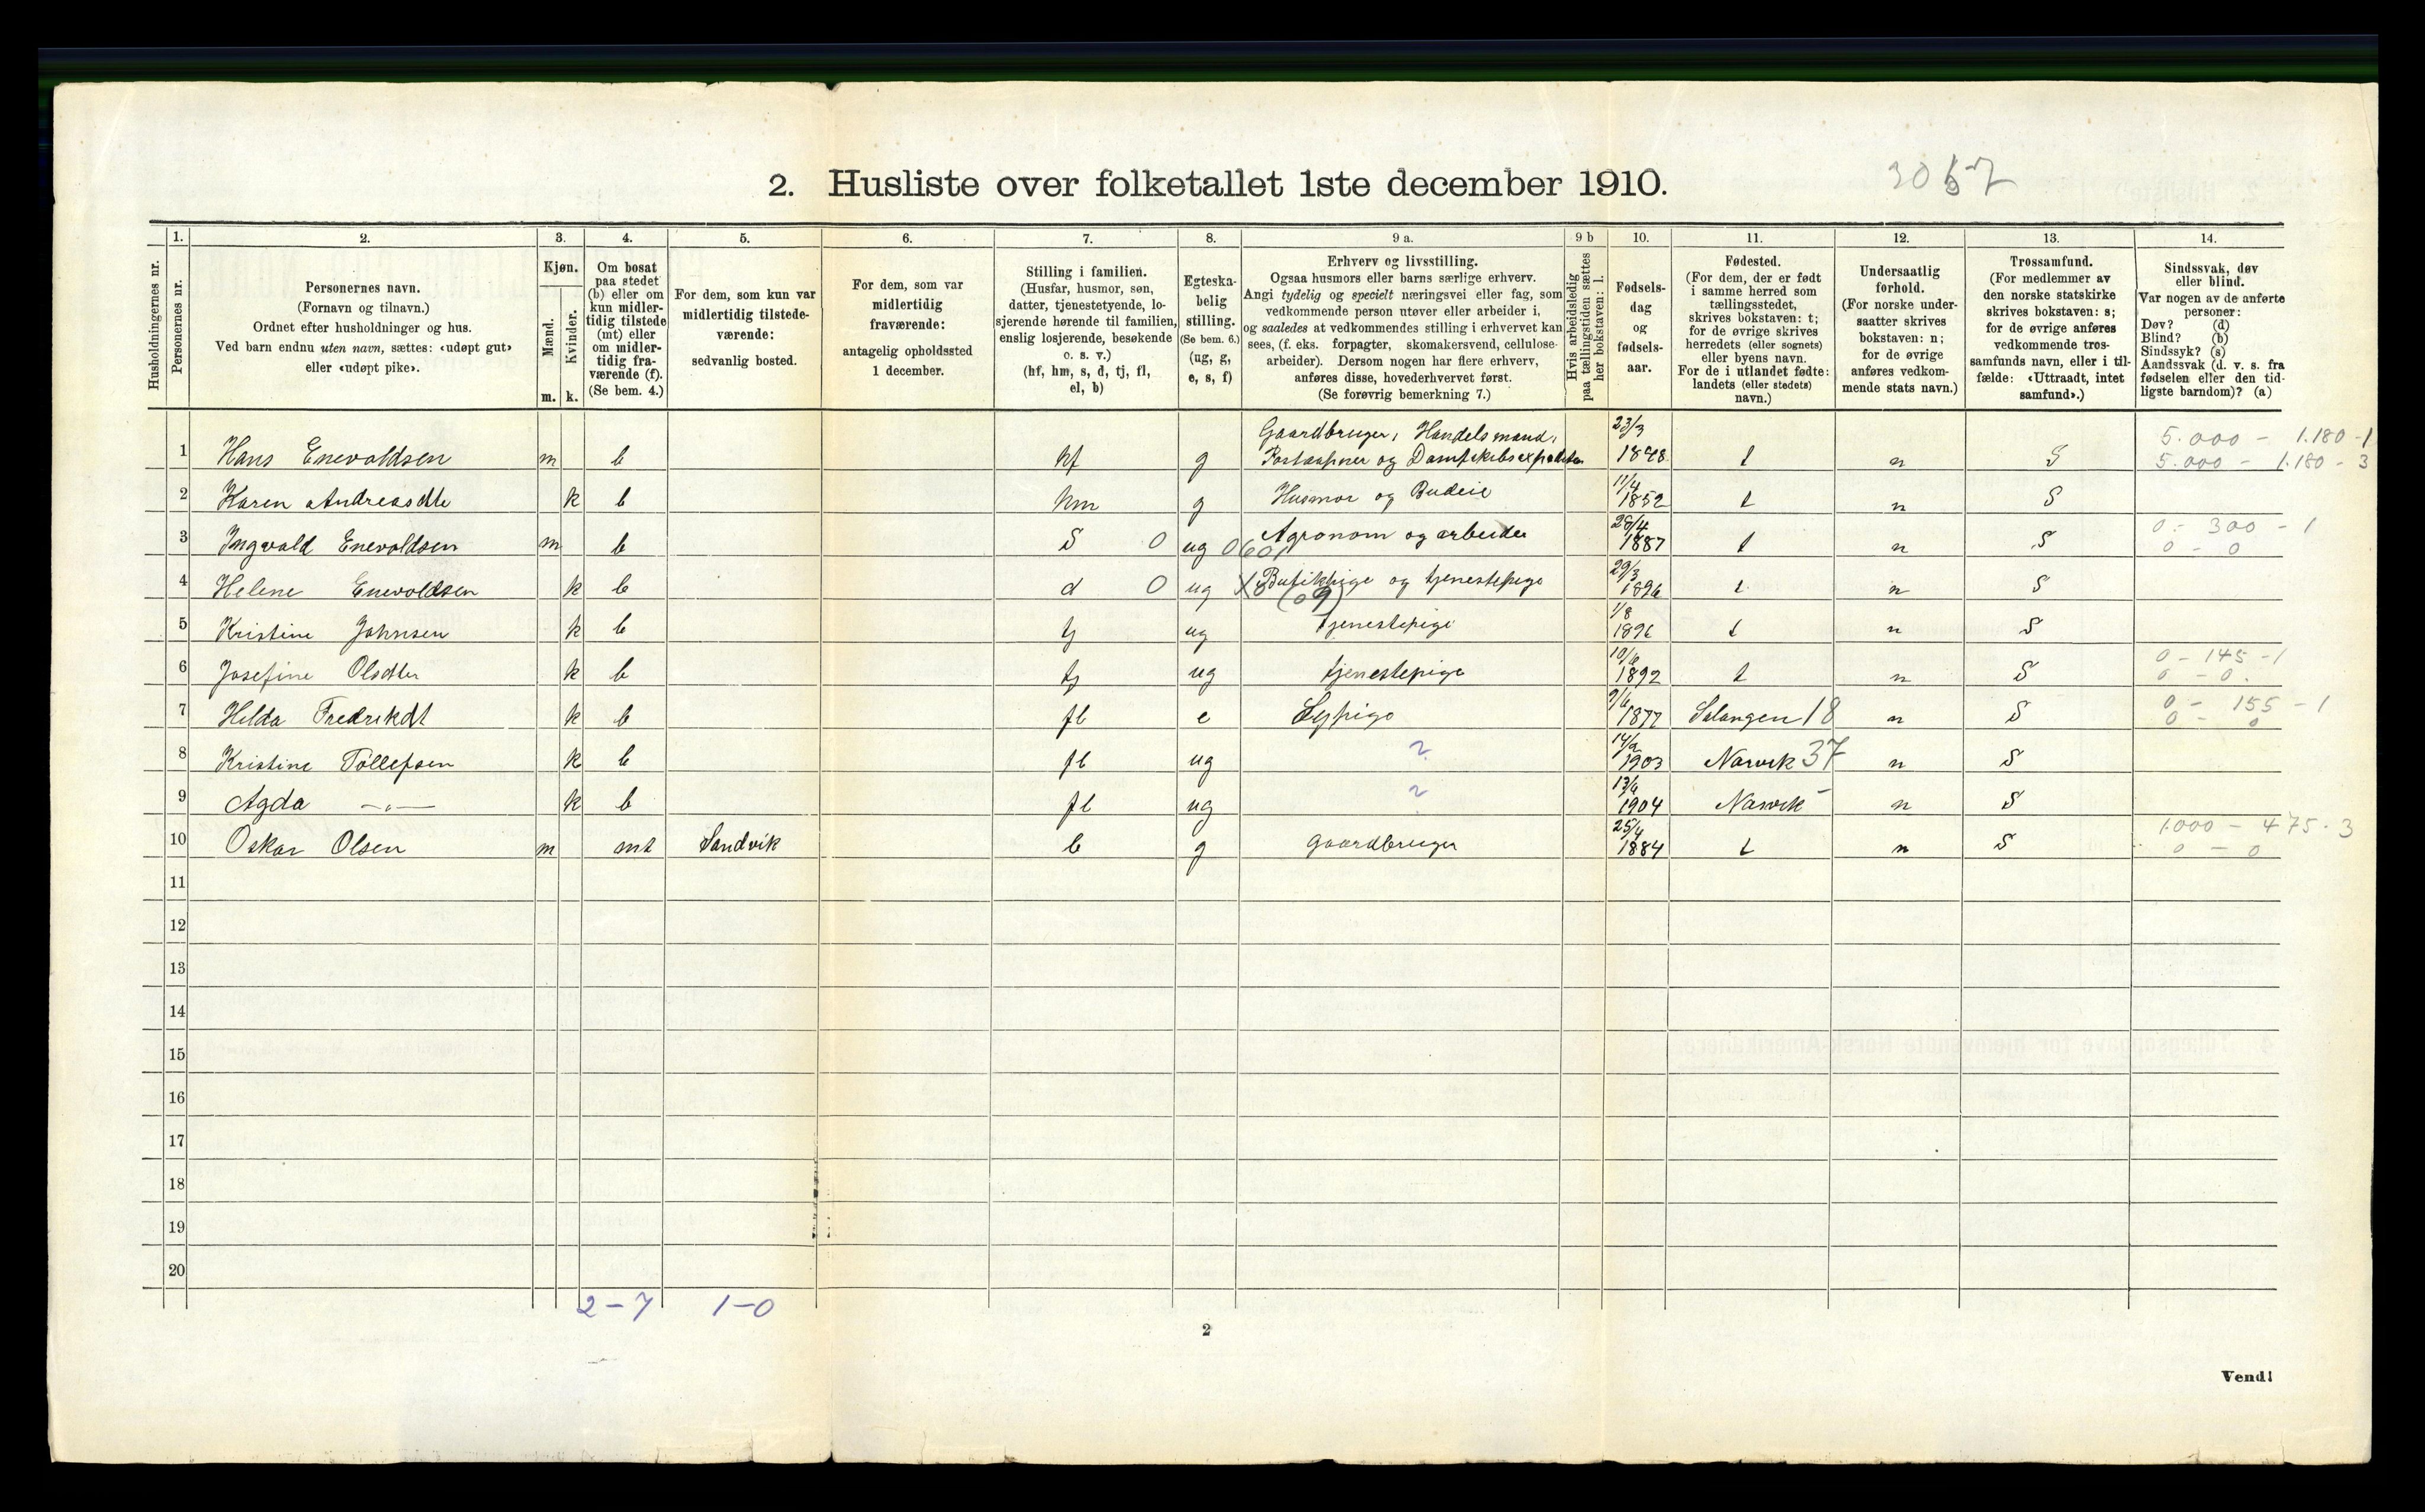 2. Husliste over folketallet 1ste december 1910.
3067
Husholdningernes nr.
1. Personernes nr.
2. Personernes navn.
(Fornavn og tilnavn.)
Ordnet efter husholdninger og hus.
Ved barn endnu uten navn, sættes: «udøpt gut»
eller «udøpt pike».
3. Kjøn.
Mænd. m.
Kvinder. k.
4. Om bosat
paa stedet
(b) eller om
kun midler-
tidig tilstede
(mt) eller
om midler-
tidig fra-
værende (f).
(Se bem. 4.)
5. For dem, som kun var
midlertidig tilstede-
værende:
sedvanlig bosted.
6. For dem, som var
midlertidig
fraværende:
antagelig opholdssted
1 december.
7. Stilling i familien.
(Husfar, husmor, søn,
datter, tjenestetyende, lo-
sjerende hørende til familien,
enslig losjerende, besøkende
o. s. v.)
(hf, hm, s, d, tj, fl,
el, b)
8. Egteska-
belig
stilling.
(Se bem. 6.)
(ug, g,
e, s, f)
9 a. Erhverv og livsstilling.
Ogsaa husmors eller barns særlige erhverv.
Angi tydelig og specielt næringsvei eller fag, som
vedkommende person utøver eller arbeider i,
og saaledes at vedkommendes stilling i erhvervet kan
sees, (f. eks. forpagter, skomakersvend, cellulose-
arbeider). Dersom nogen har flere erhverv,
anføres disse, hovederhvervet først.
(Se forøvrig bemerkning 7.)
9 b Hvis arbeidsledig
paa tællingstiden sættes
her bokstaven: l.
10. Fødsels-
dag
og
fødsels-
aar.
11. Fødested.
(For dem, der er født
i samme herred som
tællingsstedet,
skrives bokstaven: t;
for de øvrige skrives
herredets (eller sognets)
eller byens navn.
For de i utlandet fødte:
landets (eller stedets)
navn.)
12. Undersaatlig
forhold.
(For norske under-
saatter skrives
bokstaven: n;
for de øvrige
anføres vedkom-
mende stats navn.)
13. Trossamfund.
(For medlemmer av
den norske statskirke
skrives bokstaven: s;
for de øvrige anføres
vedkommende tros-
samfunds navn, eller i til-
fælde: «Uttraadt, intet
samfund».)
14. Sindssvak, døv
eller blind.
Var nogen av de anførte
personer:
Døv? (d)
Blind? (b)
Sindssyk? (s)
Aandssvak (d. v. s. fra
fødselen eller den tid-
ligste barndom)? (a)
Gaardbruger, Handelsmand, 23/3 5.000 - 1.180 - 1
1 Hans Enevoldsen m b hf g Postaapner og Dampskibsexpeditør 1848 t n S 5.000 - 1.180 - 3
2 Karen Andreasdtr k b hm g Husmor og Budeie 11/4 1852 t n S
3 Ingvald Enevoldsen m b S 0 ug Agronom og arbeider 28/4 1887 t n S 0 - 300 - 1
0 - 0
4 Helene Enevoldsen k b d 0 ug Butikpige og tjenestepige 29/3 1896 t n S
5 Kristine Johnsen k b tj ug Tjenestepige 1/8 1896 t n S
6 Josefine Olsdtter k b tj ug tjenestepige 10/6 1892 t n S 0 - 145 - 1
0 - 0.
7 Hilda Fredrikdt k b fl e Sypige 9/6 1877 Salangen 18 n S 0 - 155 - 1
0 - 0
8 Kristine Tollefsen k b fl ug ? 14/2 1903 Narvik 37 n S
9 Agda —„— k b fl ug ? 13/6 1904 Narvik n S
10 Oskar Olsen m mt Sandvik b g gaardbruger 25/4 1884 t n S 1.000 - 475 - 3
0 - 0
11
12
13
14
15
16
17
18
19
20
2 - 7 1 - 0
2
Vend!